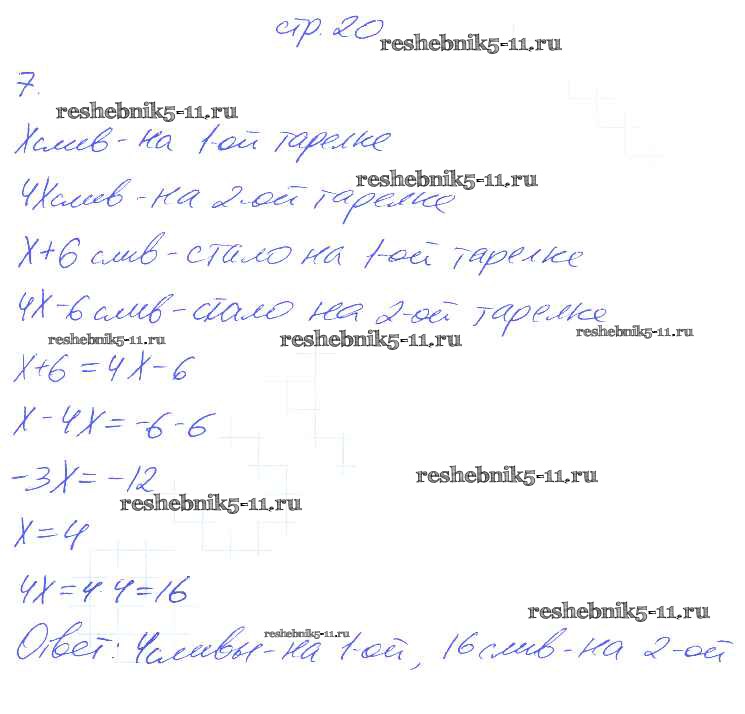 стр. 20
reshebnik5-11.ru
7.
reshebnik5-11.ru
X слив - на 1-ой тарелке
reshebnik5-11.ru
4X слив - на 2-ой тарелке
X+6 слив - стало на 1-ой тарелке
4X-6 слив - стало на 2-ой тарелке
reshebnik5-11.ru reshebnik5-11.ru reshebnik5-11.ru
X+6=4X-6
X-4X=-6-6
-3X=-12
reshebnik5-11.ru
reshebnik5-11.ru
X=4
4X=4·4=16
reshebnik5-11.ru
reshebnik5-11.ru
Ответ: 4 сливы - на 1-ой, 16 слив - на 2-ой